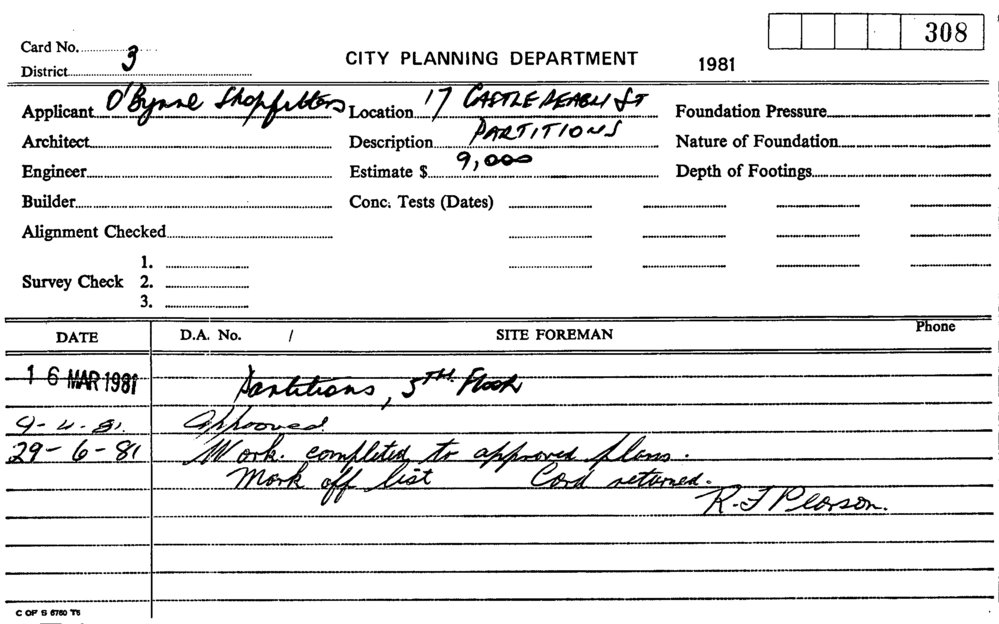 308
Card No.
3
CITY PLANNING DEPARTMENT 1981
District
Applicant O'Byrne Shopfitters Location 17 CASTLEREAGH ST Foundation Pressure
Architect Description PARTITIONS Nature of Foundation
Engineer Estimate $ 9,000 Depth of Footings
Builder Conc. Tests (Dates)
Alignment Checked
1.
Survey Check 2.
3.
DATE D.A. No. / SITE FOREMAN Phone
16 MAR 1981 Partitions, 5TH Floor
9-4-81. Approved.
29-6-81 Work. completed to approved plans.
Mark off list Card returned.
R. J Pearson.
C OF S 6760 T6